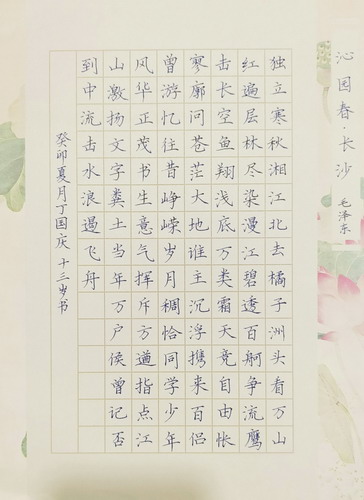 沁园春·长沙
毛泽东
独立寒秋湘江北去橘子洲头看万山
红遍层林尽染漫江碧透百舸争流鹰
击长空鱼翔浅底万类霜天竞自由怅
寥廓问苍茫大地谁主沉浮携来百侣
曾游忆往昔峥嵘岁月稠恰同学少年
风华正茂书生意气挥斥方遒指点江
山激扬文字粪土当年万户侯曾记否
到中流击水浪遏飞舟
癸卯夏月丁国庆十三岁书